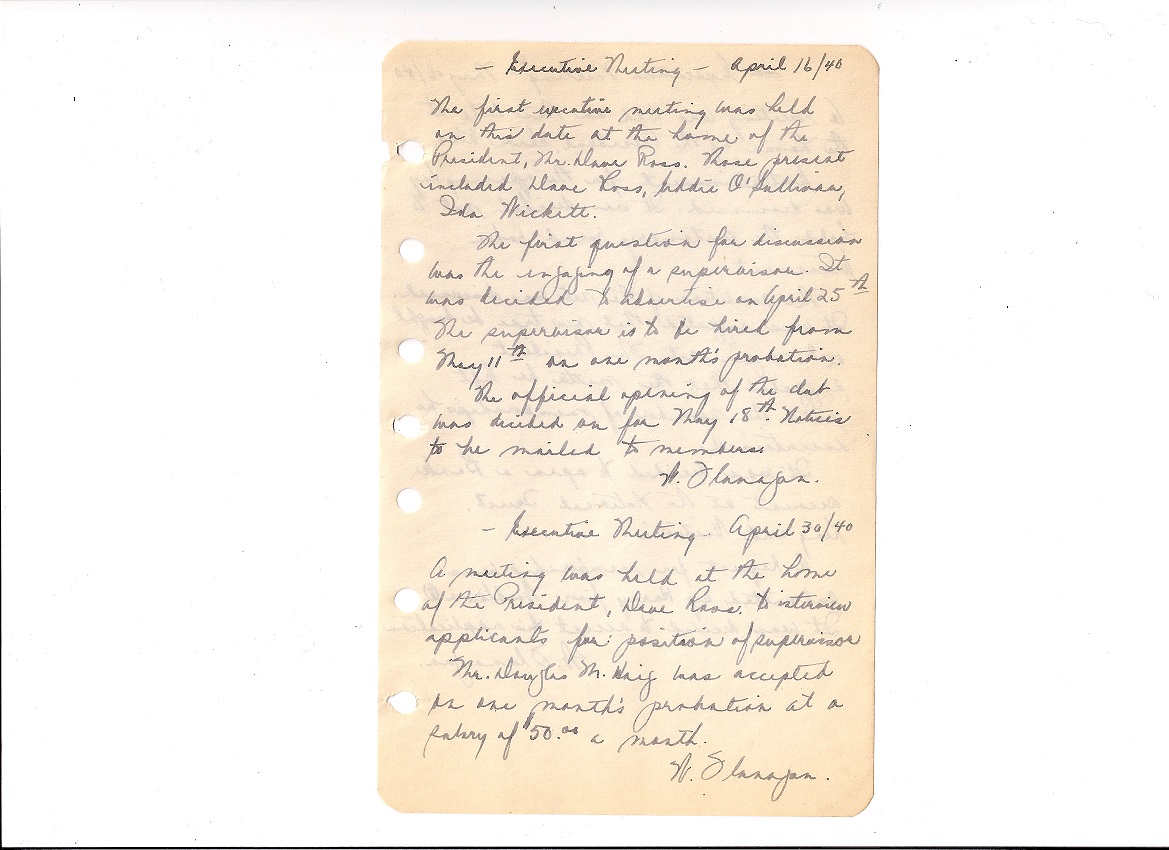 - Executive Meeting - April 16/40
The first executive meeting was held
on this date at the home of the
President, Mr. Dave Ross. Those present
included Dave Ross, Eddie O'Sullivan,
Ida Wickett.
The first question for discussion
was the engaging of a supervisor. It
was decided to advertise on April 25th
The supervisor is to be hired from
May 11th on one month's probation.
The official opening of the club
was decided on for May 18th. Notices
to be mailed to members.
W. Flanagan.
- Executive Meeting - April 30/40
A meeting was held at the home
of the President, Dave Ross. to interview
applicants for position of supervisor
Mr. Douglas M. Haig was accepted
on one month's probation at a
salary of $50.00 a month.
W. Flanagan.